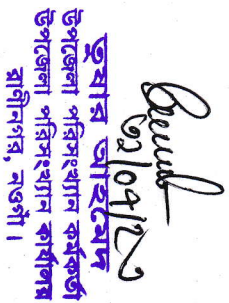 ২১/০৭/২১
তুষার আহমেদ
উপজেলা পরিসংখ্যান কর্মকর্তা
উপজেলা পরিসংখ্যান কার্যালয়
রাণীনগর, নওগাঁ।